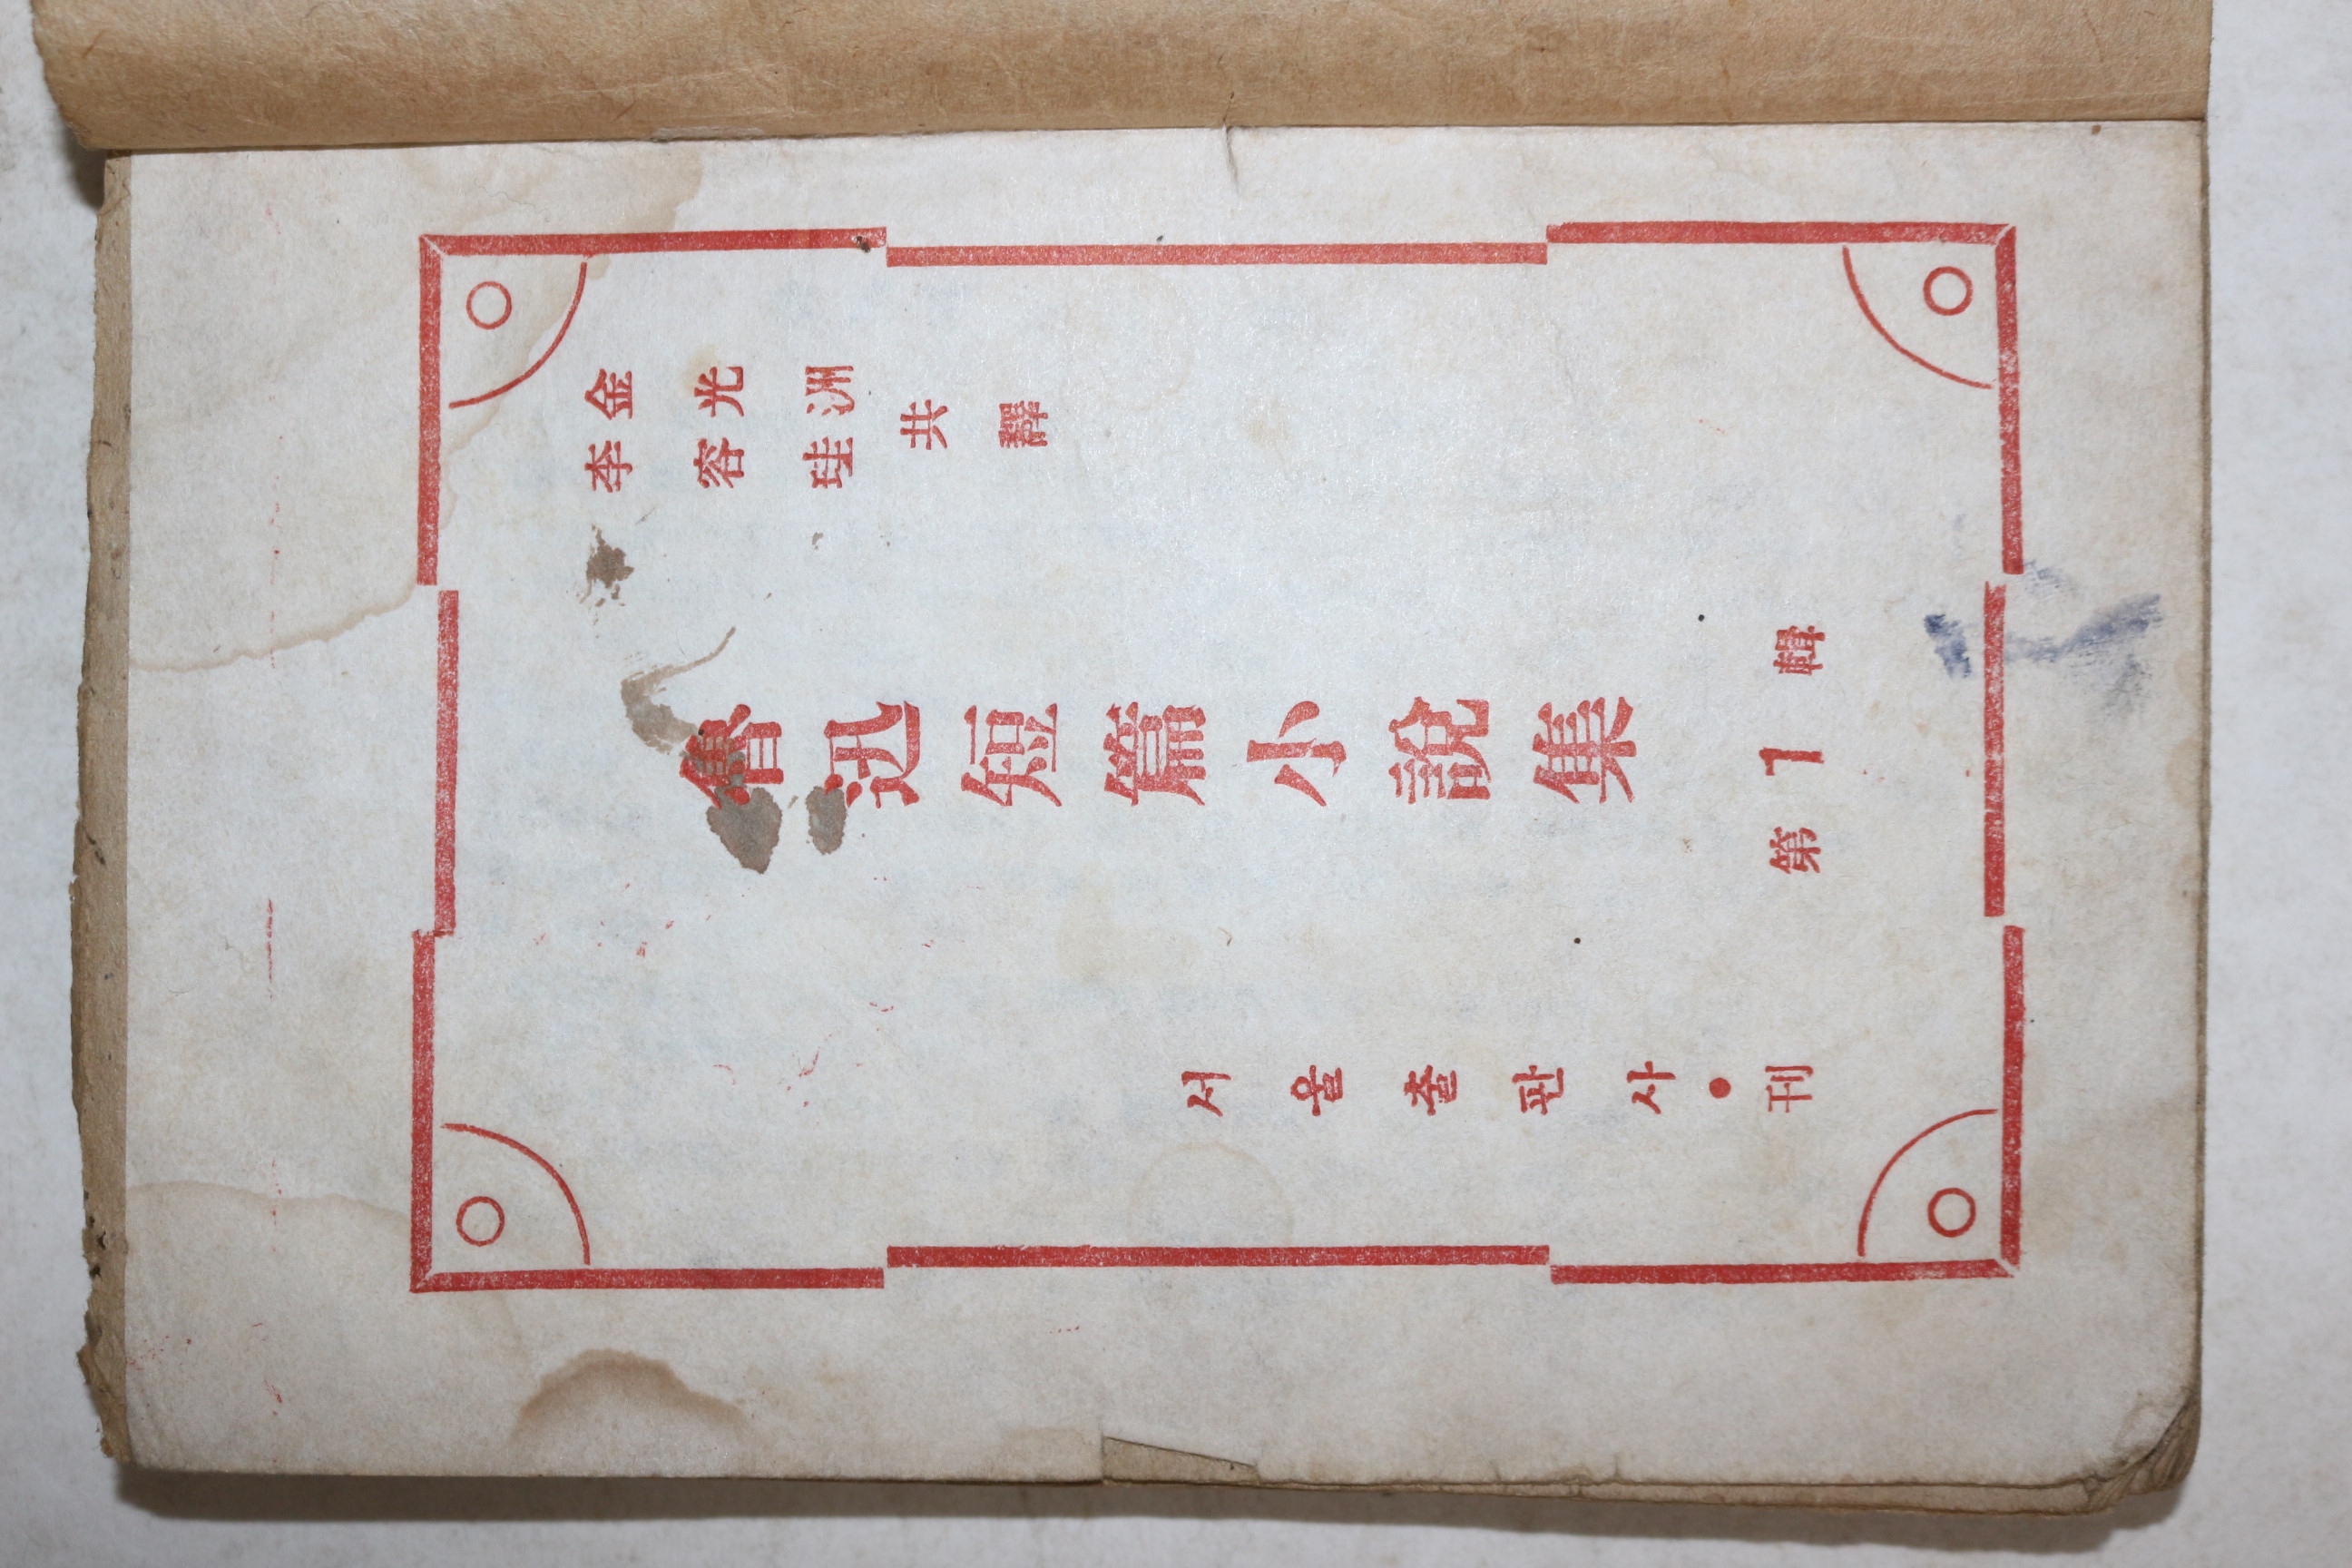 金光洲
李容珪
共譯
魯迅短篇小說集
第1輯
서울출판사・刊